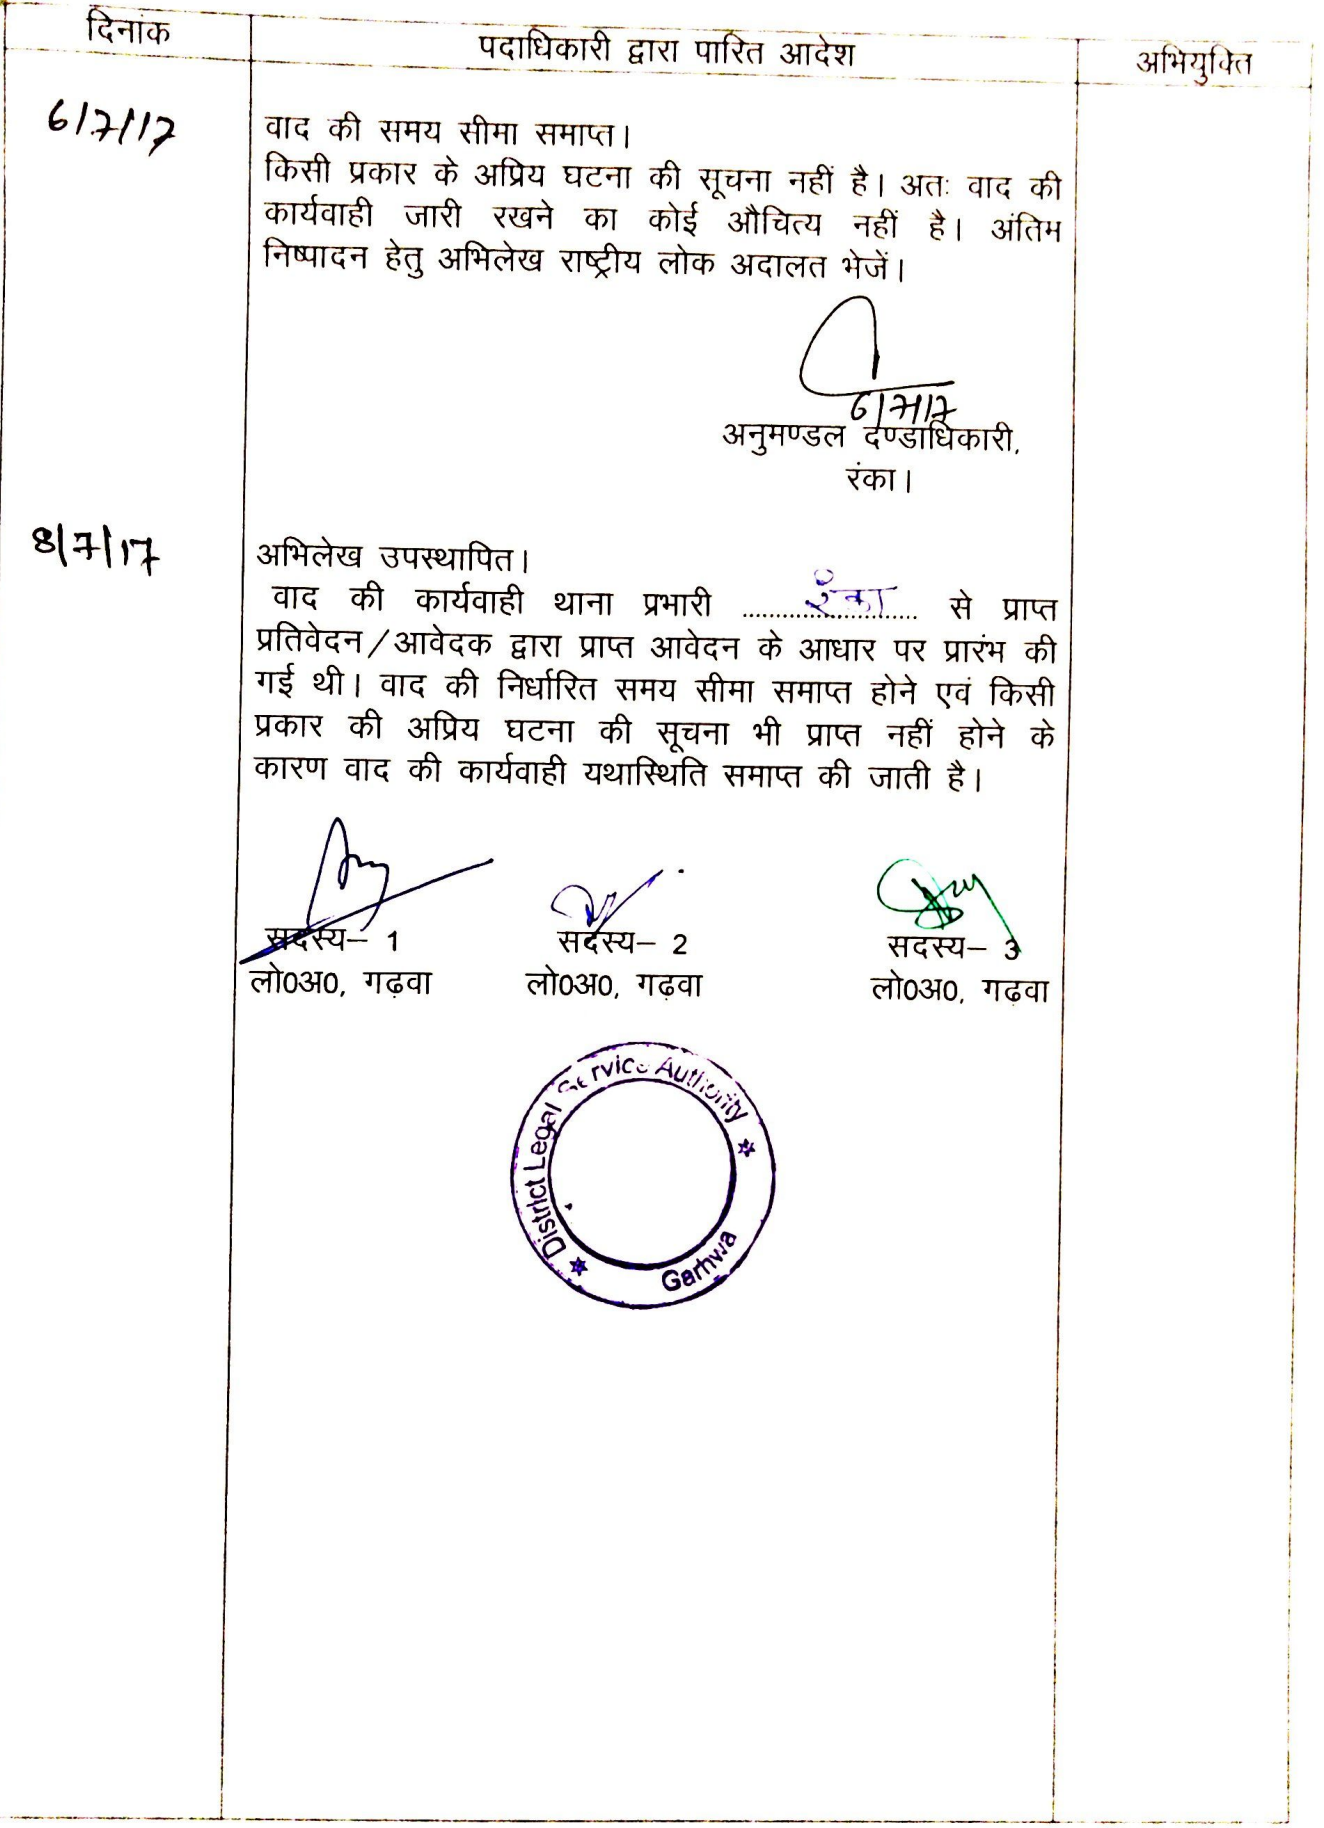 दिनांक
पदाधिकारी द्वारा पारित आदेश
अभियुक्ति
6/7/17
वाद की समय सीमा समाप्त।
किसी प्रकार के अप्रिय घटना की सूचना नहीं है। अतः वाद की
कार्यवाही जारी रखने का कोई औचित्य नहीं है। अंतिम
निष्पादन हेतु अभिलेख राष्ट्रीय लोक अदालत भेजें।
6/7/17
अनुमण्डल दण्डाधिकारी,
रंका।
8/7/17
अभिलेख उपस्थापित।
वाद की कार्यवाही थाना प्रभारी ......रंका...... से प्राप्त
प्रतिवेदन/आवेदक द्वारा प्राप्त आवेदन के आधार पर प्रारंभ की
गई थी। वाद की निर्धारित समय सीमा समाप्त होने एवं किसी
प्रकार की अप्रिय घटना की सूचना भी प्राप्त नहीं होने के
कारण वाद की कार्यवाही यथास्थिति समाप्त की जाती है।
सदस्य– 1 सदस्य– 2 सदस्य– 3
लो0अ0, गढ़वा लो0अ0, गढ़वा लो0अ0, गढ़वा
District Legal Service Authority
Garhwa